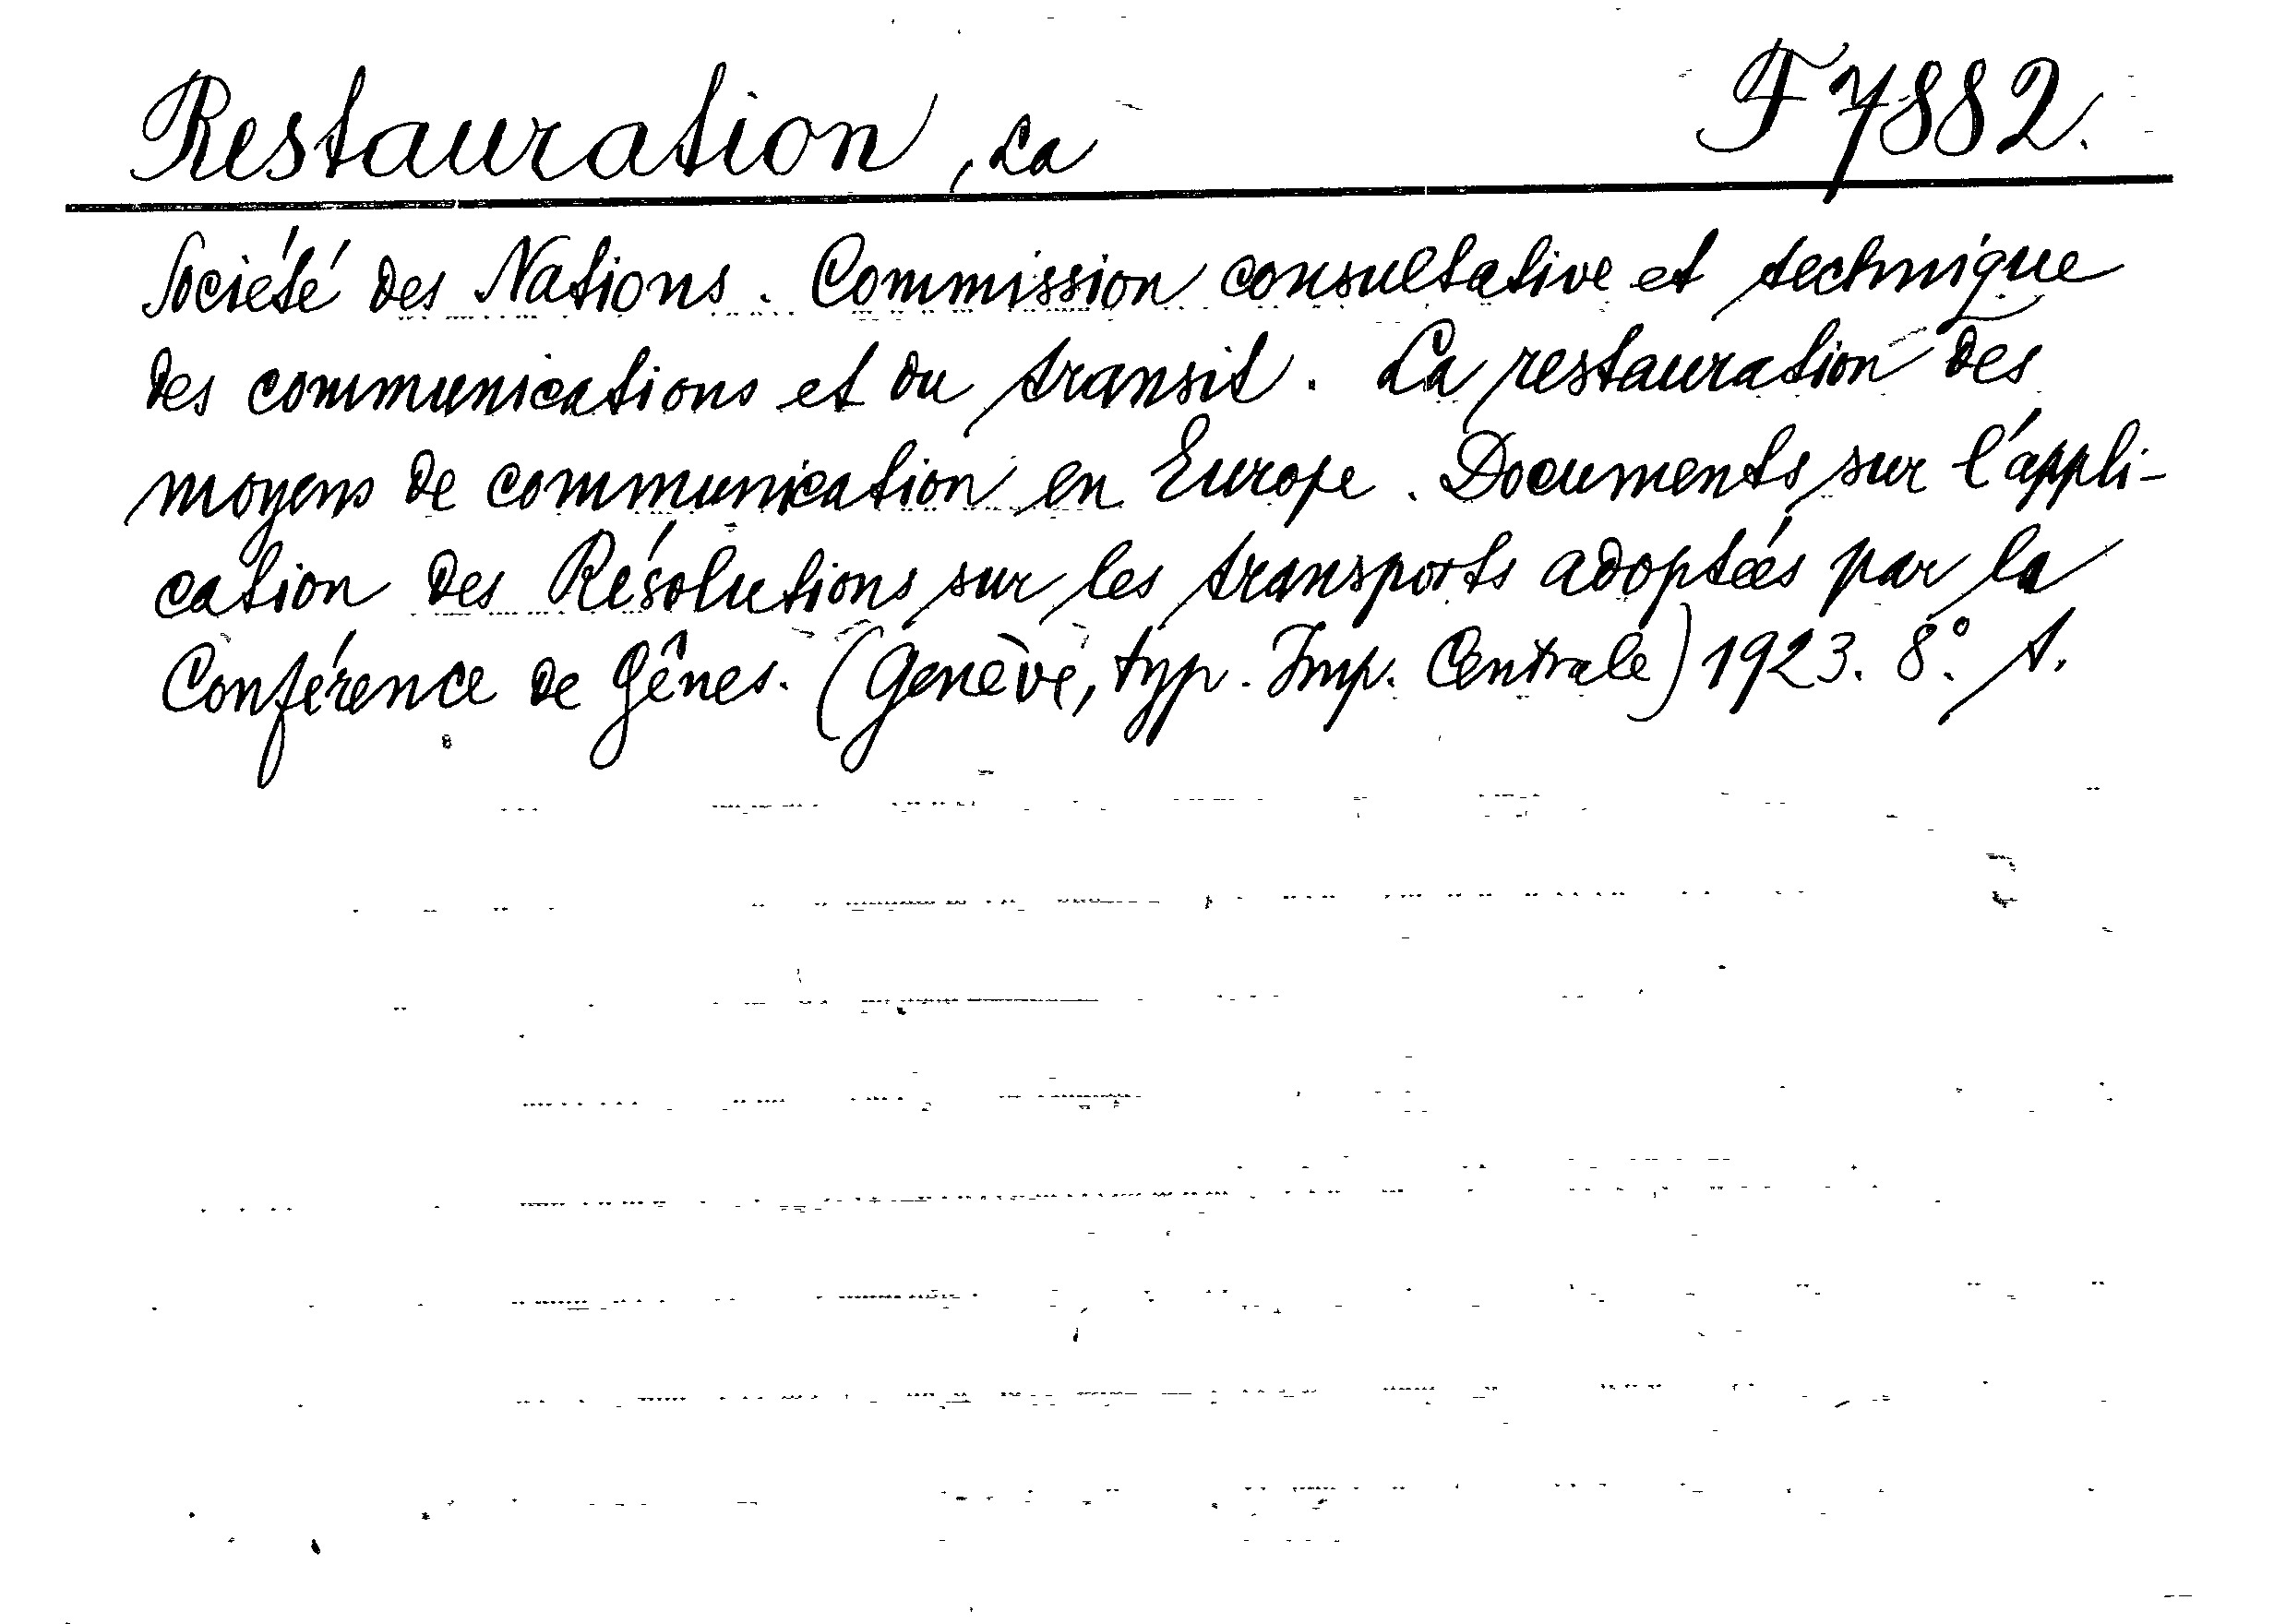 Restauration, La F 7882.
Société des Nations. Commission consultative et technique
des communications et du transit. La restauration des
moyens de communication en Europe. Documents sur l'appli-
cation des Résolutions sur les transports adoptées par la
Conférence de Gênes. (Genève, typ. Imp. Centrale) 1923. 8°. A.